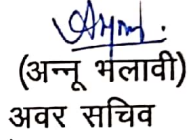 (अन्नू भलावी)
अवर सचिव